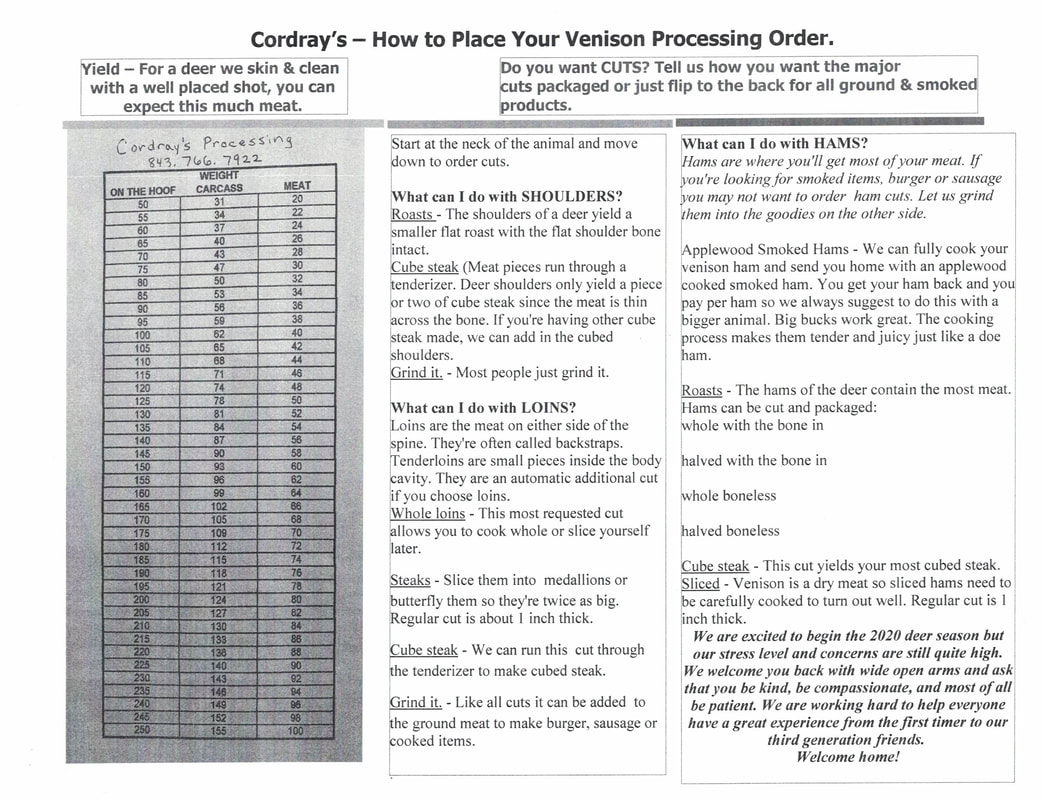 Cordray's – How to Place Your Venison Processing Order.
Yield – For a deer we skin & clean
with a well placed shot, you can
expect this much meat.
Do you want CUTS? Tell us how you want the major
cuts packaged or just flip to the back for all ground & smoked
products.
Cordray's Processing
843.766.7922
WEIGHT
ON THE HOOF CARCASS MEAT
50 31 20
55 34 22
60 37 24
65 40 26
70 43 28
75 47 30
80 50 32
85 53 34
90 56 36
95 59 38
100 62 40
105 65 42
110 68 44
115 71 46
120 74 48
125 78 50
130 81 52
135 84 54
140 87 56
145 90 58
150 93 60
155 96 62
160 99 64
165 102 66
170 105 68
175 109 70
180 112 72
185 115 74
190 118 76
195 121 78
200 124 80
205 127 82
210 130 84
215 133 86
220 136 88
225 140 90
230 143 92
235 146 94
240 149 96
245 152 98
250 155 100
Start at the neck of the animal and move
down to order cuts.
What can I do with SHOULDERS?
Roasts - The shoulders of a deer yield a
smaller flat roast with the flat shoulder bone
intact.
Cube steak (Meat pieces run through a
tenderizer. Deer shoulders only yield a piece
or two of cube steak since the meat is thin
across the bone. If you're having other cube
steak made, we can add in the cubed
shoulders.
Grind it. - Most people just grind it.
What can I do with LOINS?
Loins are the meat on either side of the
spine. They're often called backstraps.
Tenderloins are small pieces inside the body
cavity. They are an automatic additional cut
if you choose loins.
Whole loins - This most requested cut
allows you to cook whole or slice yourself
later.
Steaks - Slice them into medallions or
butterfly them so they're twice as big.
Regular cut is about 1 inch thick.
Cube steak - We can run this cut through
the tenderizer to make cubed steak.
Grind it. - Like all cuts it can be added to
the ground meat to make burger, sausage or
cooked items.
What can I do with HAMS?
Hams are where you'll get most of your meat. If
you're looking for smoked items, burger or sausage
you may not want to order ham cuts. Let us grind
them into the goodies on the other side.
Applewood Smoked Hams - We can fully cook your
venison ham and send you home with an applewood
cooked smoked ham. You get your ham back and you
pay per ham so we always suggest to do this with a
bigger animal. Big bucks work great. The cooking
process makes them tender and juicy just like a doe
ham.
Roasts - The hams of the deer contain the most meat.
Hams can be cut and packaged:
whole with the bone in
halved with the bone in
whole boneless
halved boneless
Cube steak - This cut yields your most cubed steak.
Sliced - Venison is a dry meat so sliced hams need to
be carefully cooked to turn out well. Regular cut is 1
inch thick.
We are excited to begin the 2020 deer season but
our stress level and concerns are still quite high.
We welcome you back with wide open arms and ask
that you be kind, be compassionate, and most of all
be patient. We are working hard to help everyone
have a great experience from the first timer to our
third generation friends.
Welcome home!